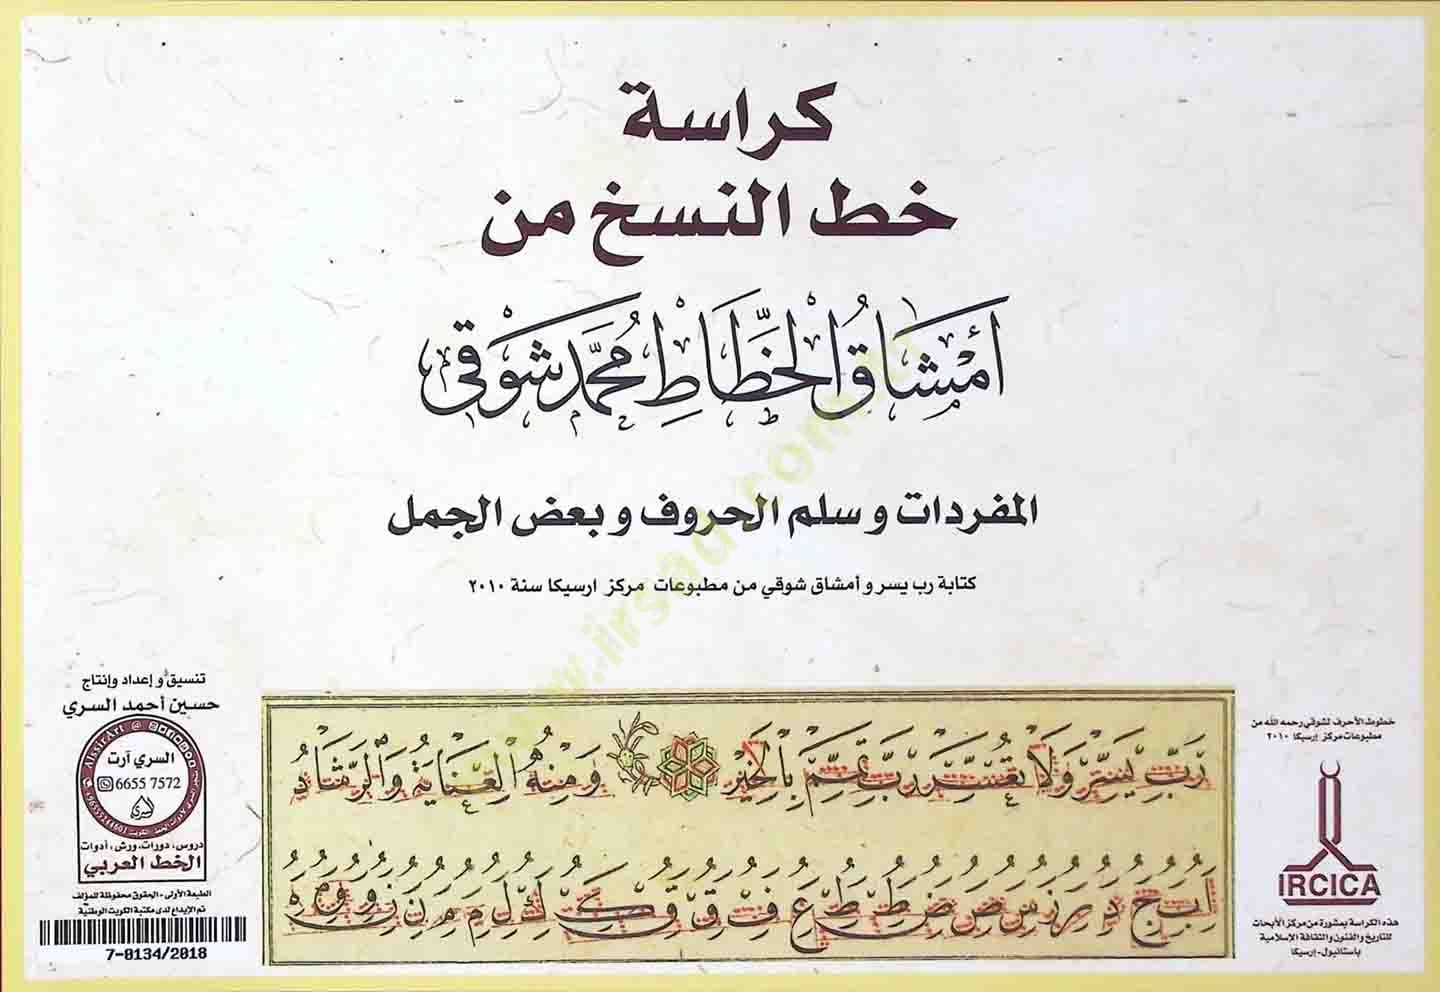 كراسة
خط النسخ من
أمشاق الخطاط محمد شوقي
المفردات وسلم الحروف وبعض الجمل
كتابة رب يسر وأمشاق شوقي من مطبوعات مركز ارسيكا سنة ٢٠١٠
www.irsad.com.tr
تنسيق وإعداد وإنتاج
حسين أحمد السري
@ AlssirArt
السري آرت
6655 7572
دروس، دورات، ورش، أدوات
الخط العربي
الطبعة الأولى - الحقوق محفوظة للمؤلف
تم الإيداع لدى مكتبة الكويت الوطنية
7-0134/2018
رب يسر ولا تعسر رب تمم بالخير ومنه العناية والرشاد
خطوط الأحرف لشوقي رحمه الله من
مطبوعات مركز إرسيكا ٢٠١٠
IRCICA
هذه الكراسة بمشورة من مركز الأبحاث
للتاريخ والفنون والثقافة الإسلامية
باستانبول - إرسيكا